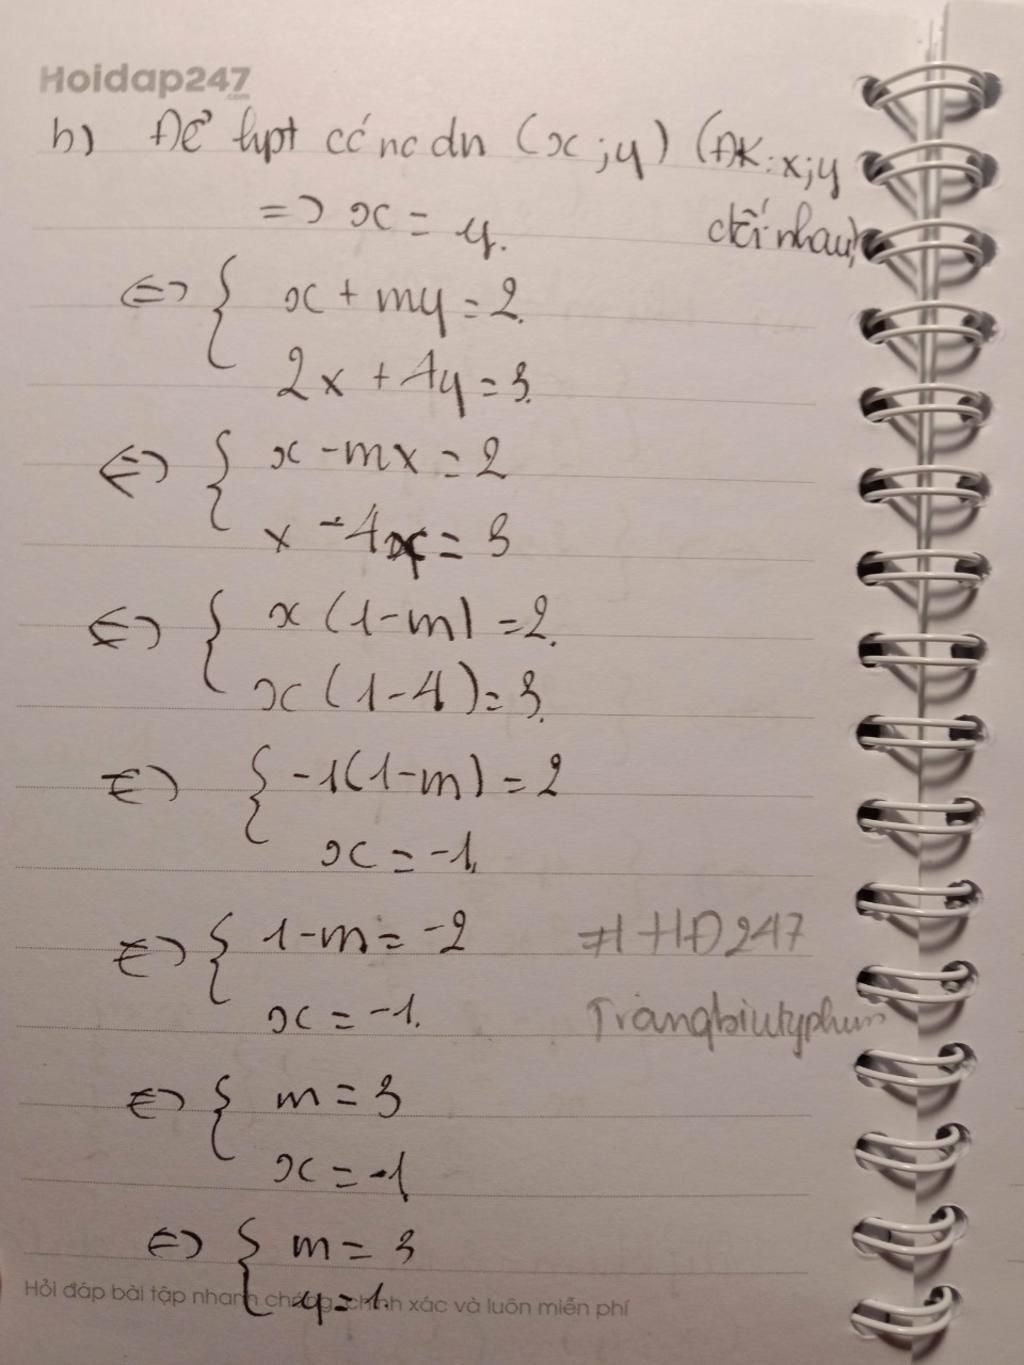 Hoidap247
.com
b) Để hpt có nc dn (x;y) (ĐK: x;y
=> x = y. đối nhau)
<=> { x + my = 2.
2x + 4y = 3.
<=> { x - mx = 2
x - 4x = 3
<=> { x (1-m) = 2.
x (1-4) = 3.
<=> { -1(1-m) = 2
x = -1.
<=> { 1-m = -2 #HĐ247
x = -1. Trangbiutyphum
<=> { m = 3
x = -1
<=> { m = 3
y = 1.
Hỏi đáp bài tập nhanh chóng, chính xác và luôn miễn phí